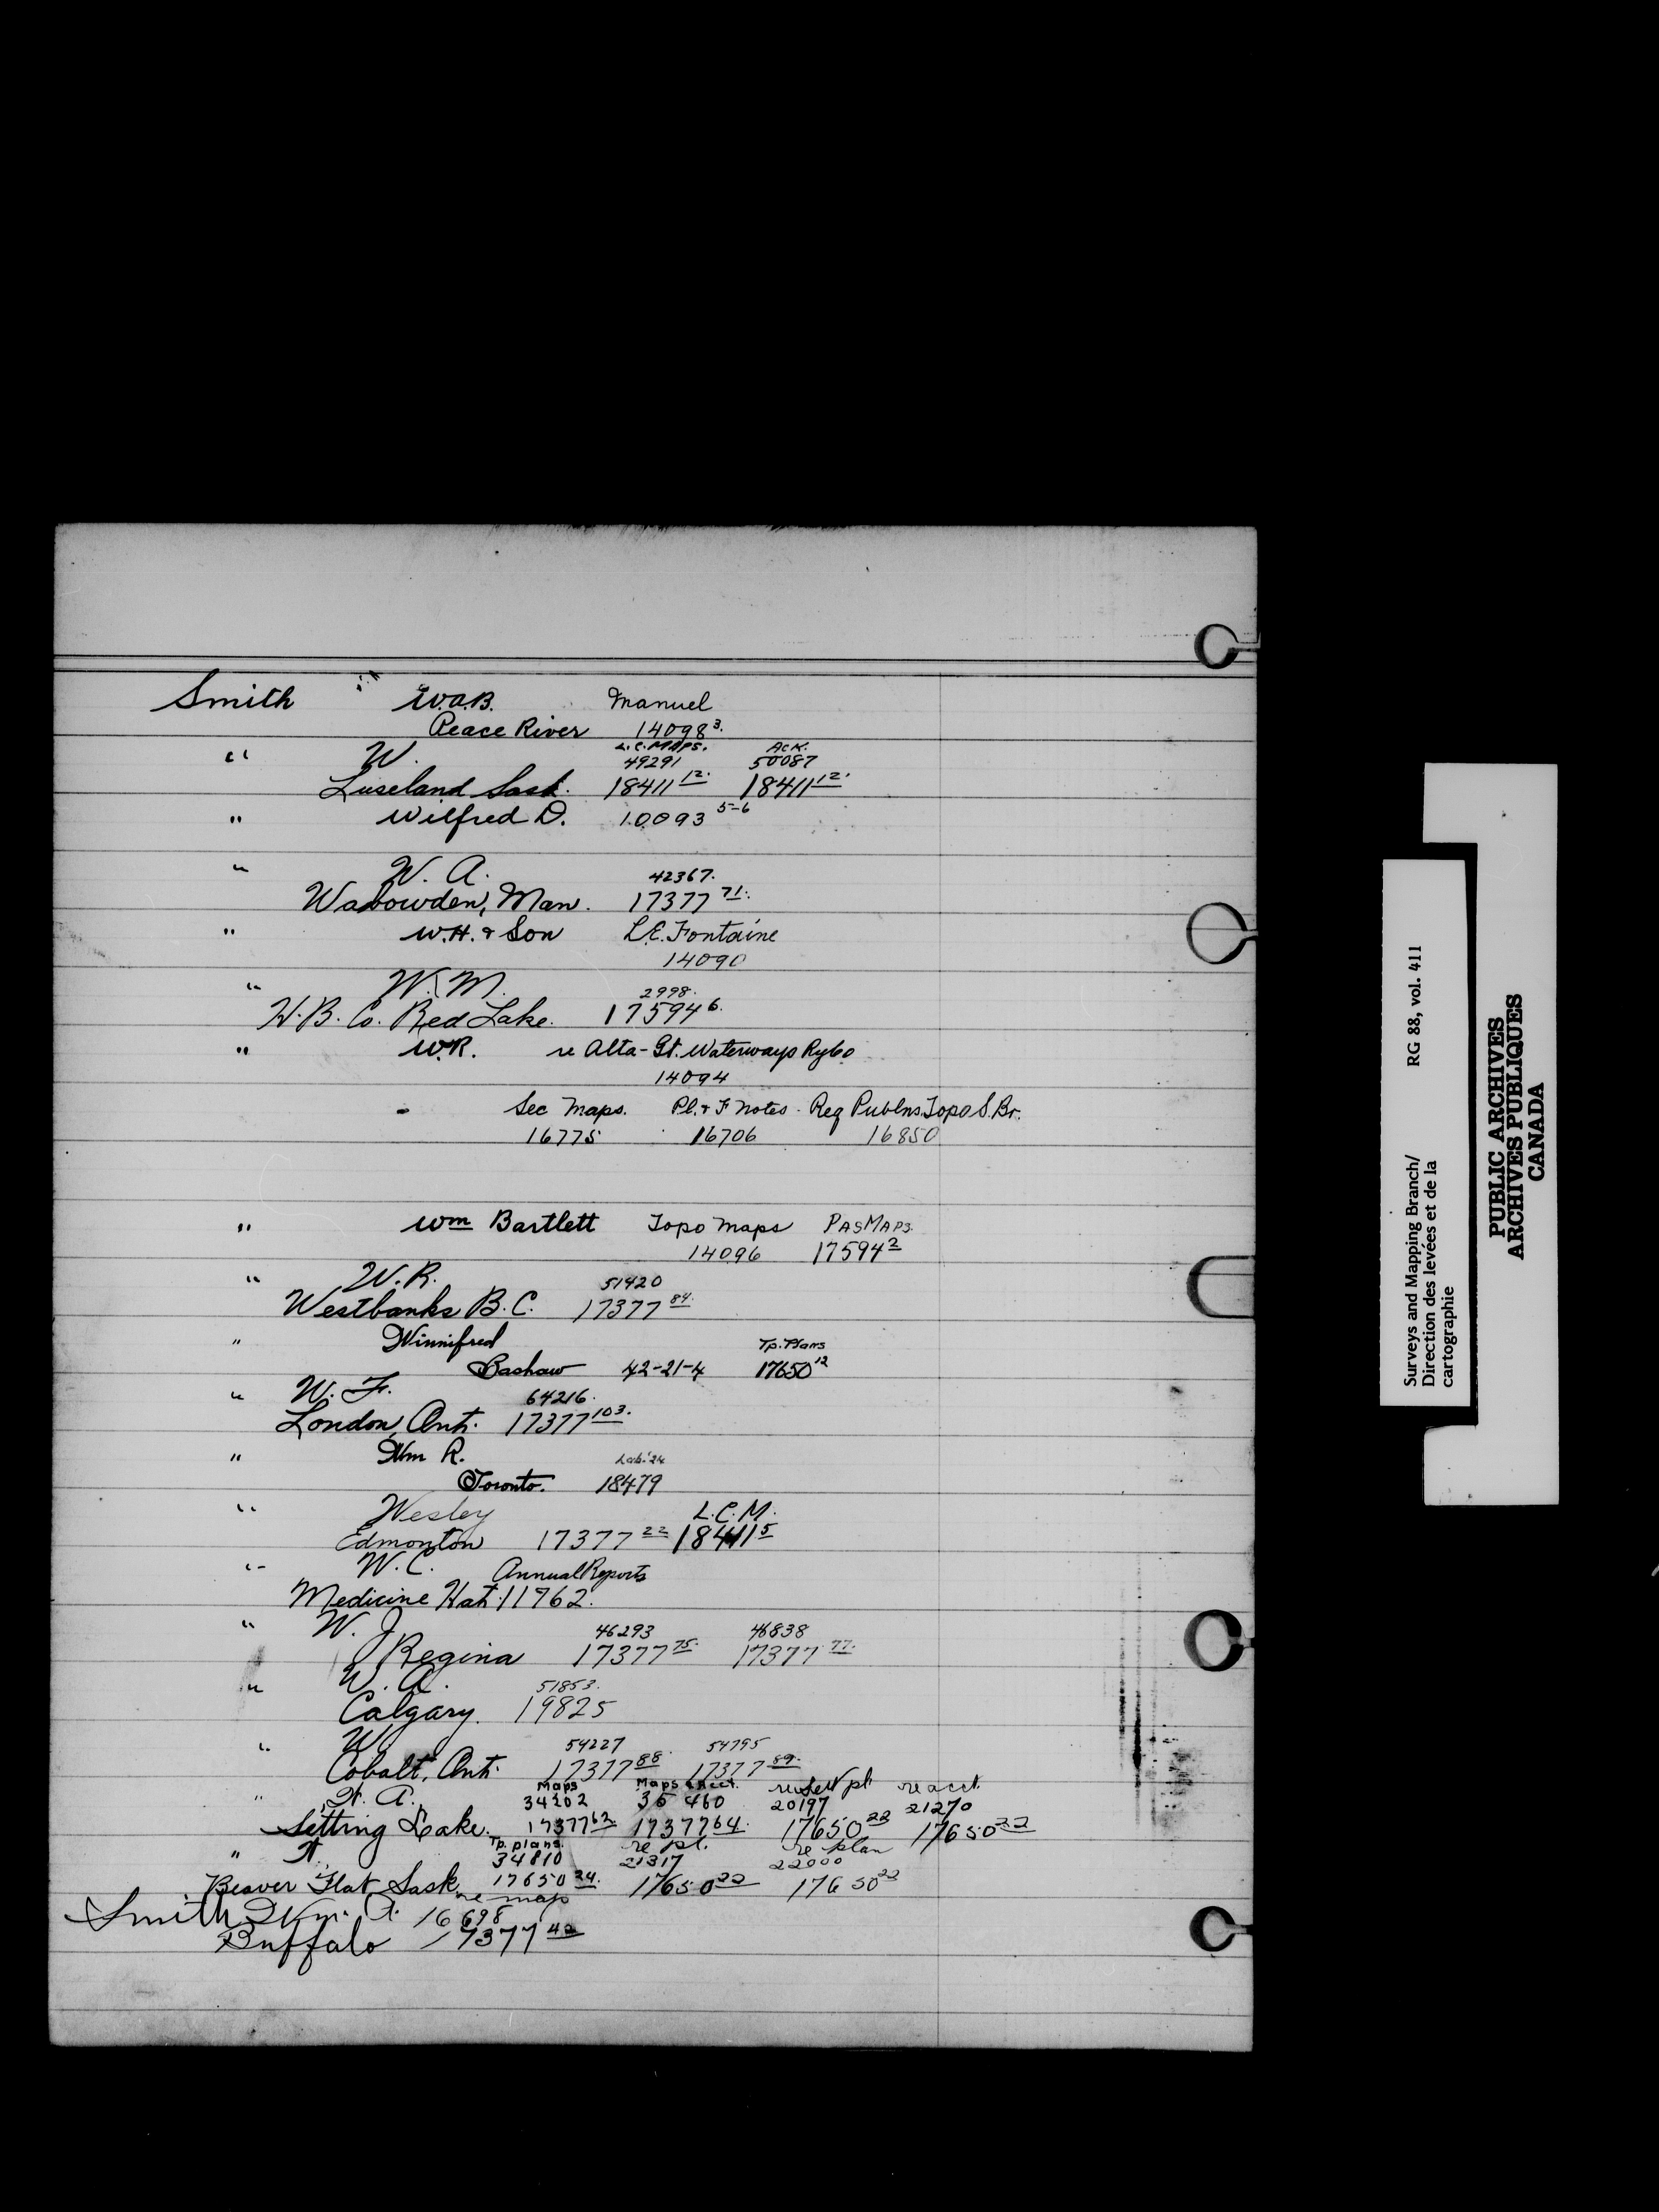 Smith W.A.B. Manuel
Peace River 14098 3.
" W. L.C. MAPS. ACK.
49291 50087
Luseland Sask. 18411 12. 18411 12.
" Wilfred D. 10093 5-6
" W. A. 42367.
Wabowden, Man. 17377 71.
" W.H. & Son L.E. Fontaine
14090
" W. M. 2998.
H.B. Co. Red Lake. 17594 6.
" W.R. re Alta-Gt. Waterways Ry Co
14094
- Sec Maps. Pl. & F Notes. Req Publns Topo S. Br.
16775 16706 16850
" Wm Bartlett Topo Maps PAS MAPS.
14096 17594 2
" W.R. 51420
Westbanks B.C. 17377 84.
" Winnifred Tp. Plans
Bashaw 42-21-4 17650 12
" W. F. 64216.
London, Ont. 17377 103.
" Wm R.
Toronto. 18479
" Wesley L.C.M.
Edmonton 17377 22 18411 5
" W.C. Annual Reports
Medicine Hat. 11762.
" W. J 46293 46838
Regina 17377 75. 17377 77.
" W. A. 51853.
Calgary. 19825
" W. 54227 54795
Cobalt, Ont. 17377 88. 17377 89.
" W. A. Maps Maps & Acct. pl. re acct.
34202 35460 20197 21270
Setting Lake. 17377 62 17377 64. 17650 22 17650 22
" W. Tp. plans. re pl. re plan
34810 21317 22000
Beaver Flat, Sask. 17650 24. 17650 22 17650 22
re map
Smith Wm. A. 16698
Buffalo 17377 42
Surveys and Mapping Branch/ RG 88, vol. 411
Direction des levées et de la
cartographie
PUBLIC ARCHIVES
ARCHIVES PUBLIQUES
CANADA